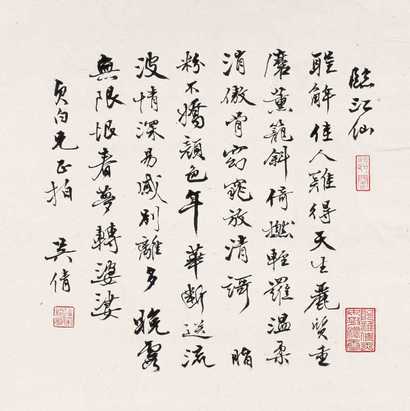 臨江仙
解佳人難得天生麗質重
磨薰籠斜倚撚輕羅溫柔
消傲骨窈窕放清謌 脂
粉不嬌顏色年華斷送流
波情深易感別離多晚
無限恨春夢轉婆娑
貞白兄正拍 吳倩